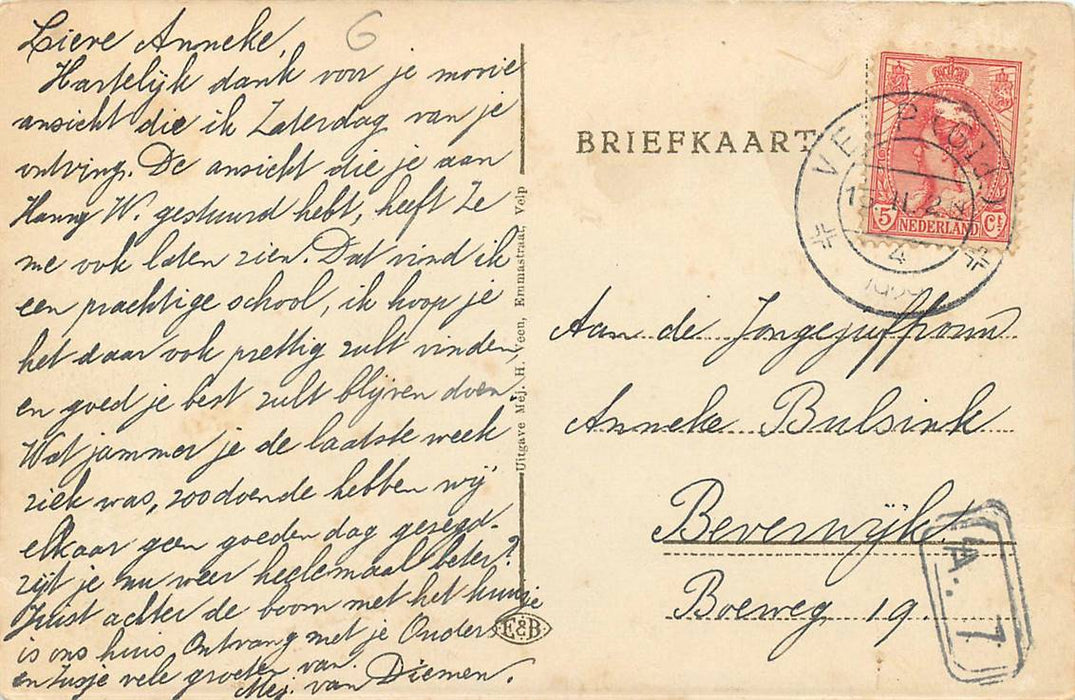 Lieve Anneke,
Hartelijk dank voor je mooie
ansicht die ik Zaterdag van je
ontving. De ansicht die je aan
Hanny W. gestuurd hebt, heeft Ze
me ook laten zien. Dat vind ik
een prachtige school, ik hoop je
het daar ook prettig zult vinden,
en goed je best zult blijven doen.
Wat jammer je de laatste week
ziek was, zoodoende hebben wij
elkaar geen goeden dag gezegd.
zijt je nu weer heelemaal beter?
Juist achter de boom met het huisje
is ons huis. Ontvang met je Ouders
en zusje vele groeten van
Mej. van Diemen.
6
Uitgave Mej. H. Veen, Emmastraat, Velp
E&B
BRIEFKAART
VELP (GLD.)
4
5 NEDERLAND Ct
Aan de Jongejuffrouw
Anneke Bulsink
Beverwijk
Boeweg 19.
A. 7